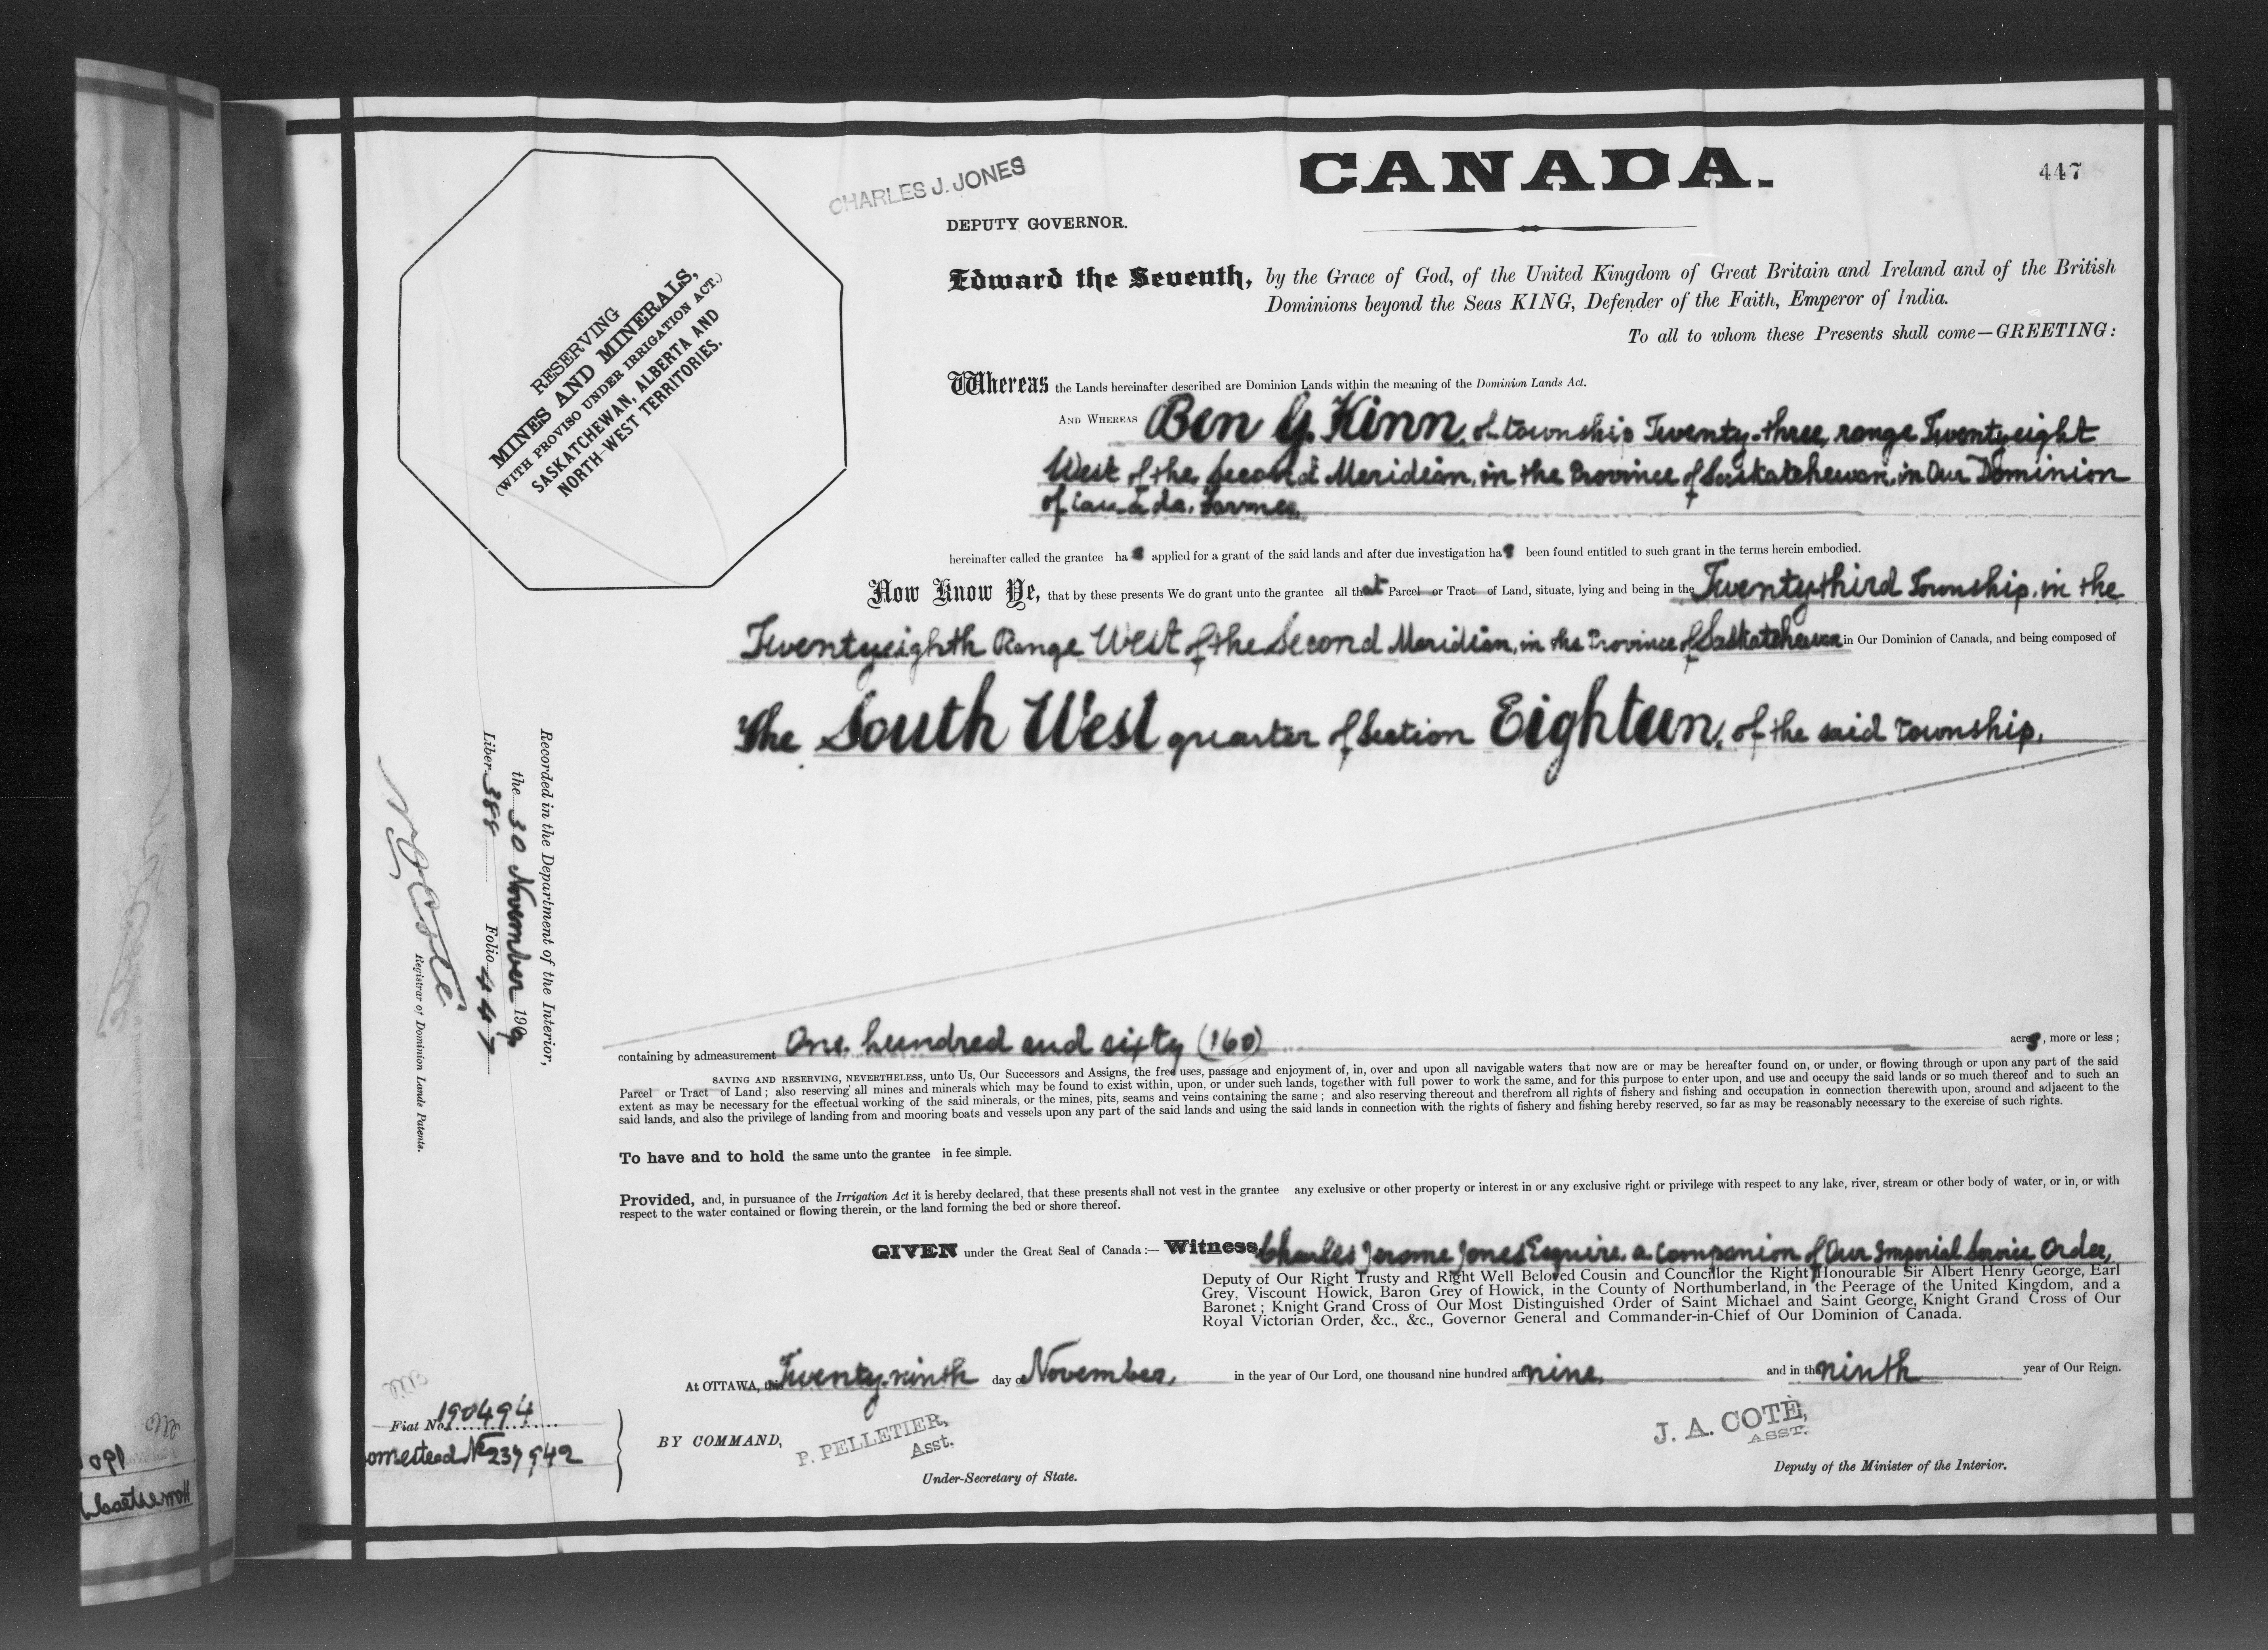 CANADA.
447
CHARLES J. JONES
DEPUTY GOVERNOR.
RESERVING
MINES AND MINERALS,
(WITH PROVISO UNDER IRRIGATION ACT.)
SASKATCHEWAN, ALBERTA AND
NORTH-WEST TERRITORIES.
Edward the Seventh, by the Grace of God, of the United Kingdom of Great Britain and Ireland and of the British
Dominions beyond the Seas KING, Defender of the Faith, Emperor of India.
To all to whom these Presents shall come—GREETING:
Whereas the Lands hereinafter described are Dominion Lands within the meaning of the Dominion Lands Act.
AND WHEREAS Ben G. Kinn, of township Twenty-three, range Twentyeight
West of the Second Meridian, in the Province of Saskatchewan, in Our Dominion
of Canada, Farmer,
hereinafter called the grantee has applied for a grant of the said lands and after due investigation has been found entitled to such grant in the terms herein embodied.
Now Know Ye, that by these presents We do grant unto the grantee all that Parcel or Tract of Land, situate, lying and being in the Twentythird Township, in the
Twentyeighth Range West of the Second Meridian, in the Province of Saskatchewan in Our Dominion of Canada, and being composed of
The South West quarter of Section Eighteen, of the said township,
containing by admeasurement One hundred and sixty (160) acres, more or less;
SAVING AND RESERVING, NEVERTHELESS, unto Us, Our Successors and Assigns, the free uses, passage and enjoyment of, in, over and upon all navigable waters that now are or may be hereafter found on, or under, or flowing through or upon any part of the said
Parcel or Tract of Land; also reserving all mines and minerals which may be found to exist within, upon, or under such lands, together with full power to work the same, and for this purpose to enter upon, and use and occupy the said lands or so much thereof and to such an
extent as may be necessary for the effectual working of the said minerals, or the mines, pits, seams and veins containing the same; and also reserving thereout and therefrom all rights of fishery and fishing and occupation in connection therewith upon, around and adjacent to the
said lands, and also the privilege of landing from and mooring boats and vessels upon any part of the said lands and using the said lands in connection with the rights of fishery and fishing hereby reserved, so far as may be reasonably necessary to the exercise of such rights.
To have and to hold the same unto the grantee in fee simple.
Provided, and, in pursuance of the Irrigation Act it is hereby declared, that these presents shall not vest in the grantee any exclusive or other property or interest in or any exclusive right or privilege with respect to any lake, river, stream or other body of water, or in, or with
respect to the water contained or flowing therein, or the land forming the bed or shore thereof.
GIVEN under the Great Seal of Canada:— Witness, Charles Jerome Jones Esquire, a Companion of Our Imperial Service Order,
Deputy of Our Right Trusty and Right Well Beloved Cousin and Councillor the Right Honourable Sir Albert Henry George, Earl
Grey, Viscount Howick, Baron Grey of Howick, in the County of Northumberland, in the Peerage of the United Kingdom, and a
Baronet; Knight Grand Cross of Our Most Distinguished Order of Saint Michael and Saint George, Knight Grand Cross of Our
Royal Victorian Order, &c., &c., Governor General and Commander-in-Chief of Our Dominion of Canada.
At OTTAWA, this Twenty-ninth day of November, in the year of Our Lord, one thousand nine hundred and nine, and in the ninth year of Our Reign.
BY COMMAND,
P. PELLETIER,
Asst.
Under-Secretary of State.
J. A. COTÉ,
ASST.
Deputy of the Minister of the Interior.
Recorded in the Department of the Interior,
the 30 November 1909
Liber 388 Folio 447
N O Coté
Registrar of Dominion Lands Patents.
Fiat No. 190494
omestead No 237942